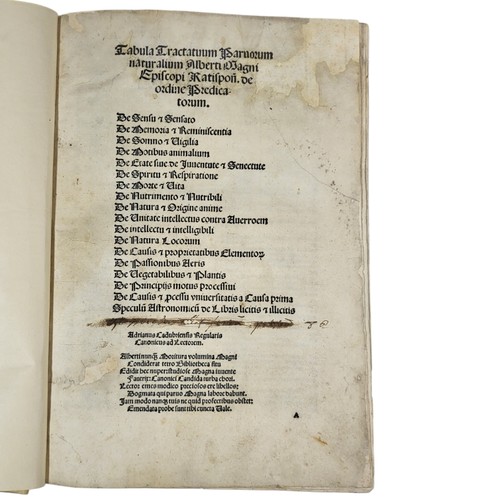 Tabula Tractatuum Paruorum
naturalium Alberti Magni
Episcopi Ratispoñ. de
ordine Predica
torum.
De Sensu ⁊ Sensato
De Memoria ⁊ Reminiscentia
De Somno ⁊ Uigilia
De Motibus animalium
De Etate siue de Iuuentute ⁊ Senectute
De Spiritu ⁊ Respiratione
De Morte ⁊ Uita
De Nutrimento ⁊ Nutribili
De Natura ⁊ Origine anime
De Unitate intellectus contra Auerroem
De intellectu ⁊ intelligibili
De Natura Locorum
De Causis ⁊ proprietatibus Elementoꝝ
De Passionibus Aeris
De Uegetabilibus ⁊ Plantis
De Principijs motus processiui
De Causis ⁊ ꝓcessu vniuersitatis a Causa prima
Speculū Astronomicū de Libris licitis ⁊ illicitis
Adrianus Regularis
Canonicus ad Lectorem.
Alberti nunq̄ Moritura volumina Magni
Condiderat tetro Bibliotheca situ
Edidit hec nuper: studiose Magna iuuente
Canonici Candida turba chori.
Lector emes modico preciosos ere libellos:
Dogmata qui paruo Magna labore dabunt.
Iam modo nanq̄ tuis ne quid profectibus obstet:
Emendata probe sunt tibi cuncta Uale.
A